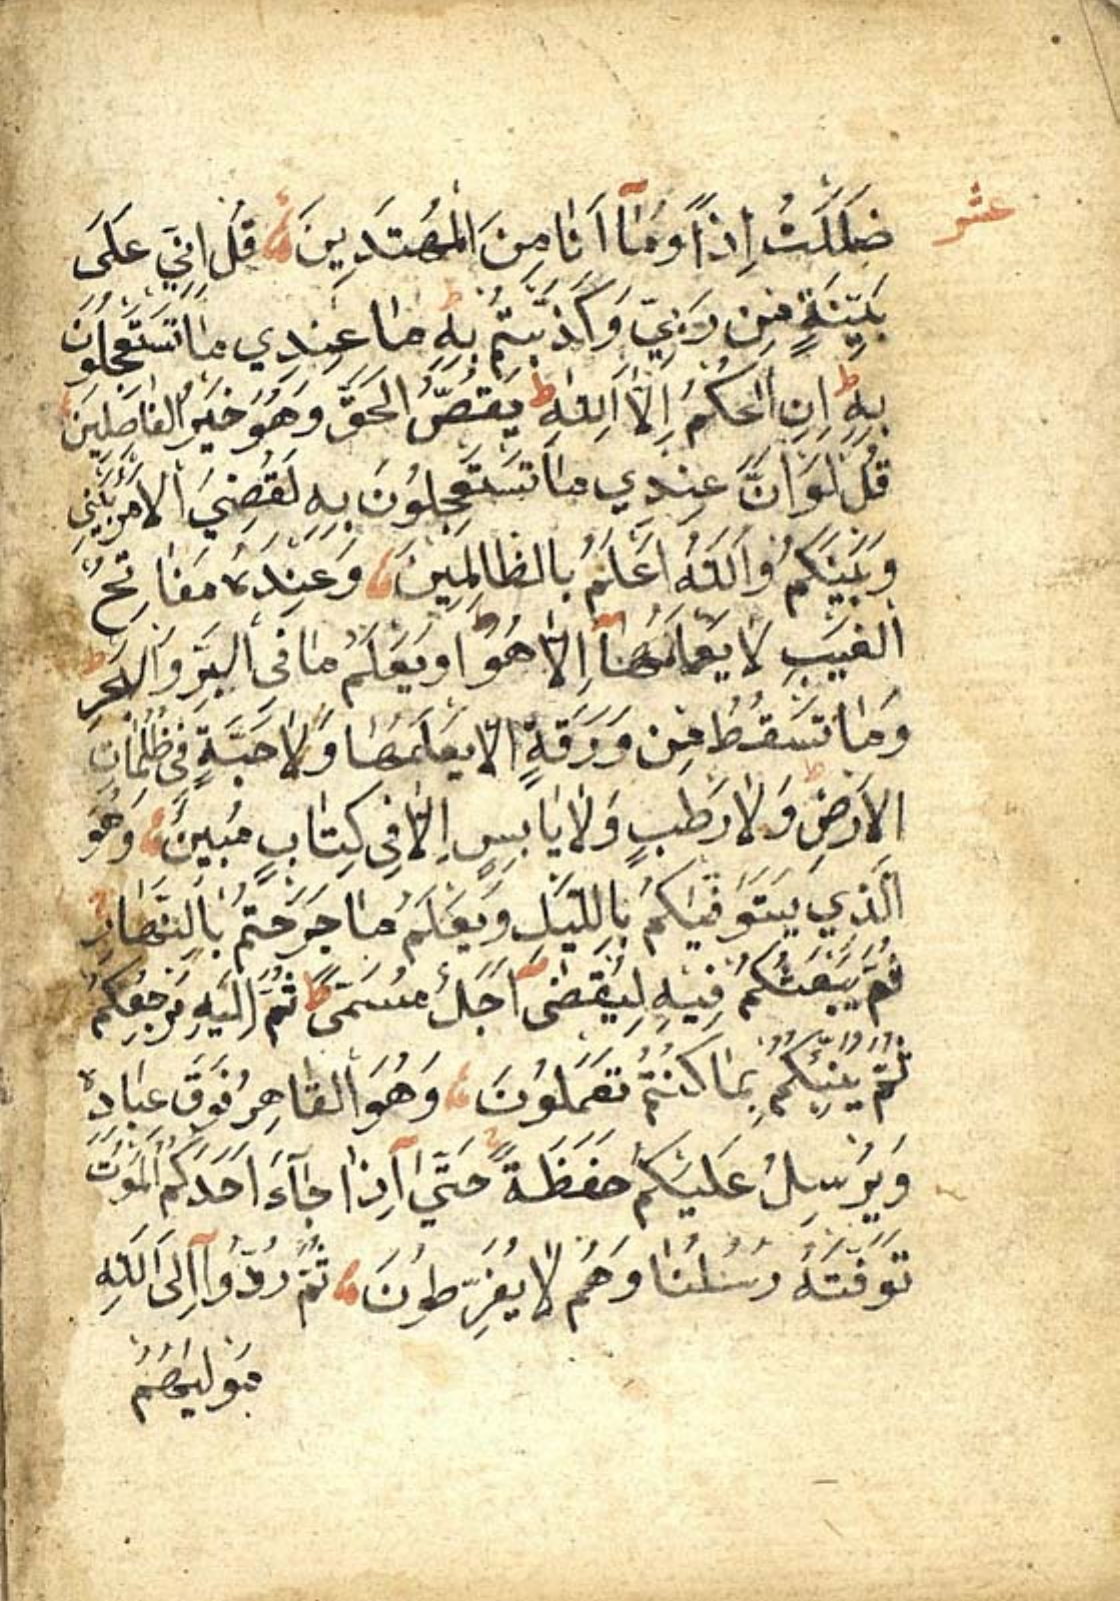 عشر
ضَلَلْتُ اِذًا وَمَٓا اَنَا مِنَ الْمُهْتَدِينَ قُلْ اِنِّي عَلَى
بَيِّنَةٍ مِنْ رَبِّي وَكَذَّبْتُمْ بِهِ ط مَا عِنْدِي مَا تَسْتَعْجِلُونَ
بِهِ ط اِنِ الْحُكْمُ اِلَّا لِلّٰهِ ط يَقُصُّ الْحَقَّ وَهُوَ خَيْرُ الْفَاصِلِينَ
قُلْ لَوْ اَنَّ عِنْدِي مَا تَسْتَعْجِلُونَ بِهِ لَقُضِيَ الْاَمْرُ بَيْنِي
وَبَيْنَكُمْ وَاللّٰهُ اَعْلَمُ بِالظَّالِمِينَ وَعِنْدَهُ مَفَاتِحُ
الْغَيْبِ لَا يَعْلَمُهَٓا اِلَّا هُوَ ط وَيَعْلَمُ مَا فِي الْبَرِّ وَالْبَحْرِ ط
وَمَا تَسْقُطُ مِنْ وَرَقَةٍ اِلَّا يَعْلَمُهَا وَلَا حَبَّةٍ فِي ظُلُمَاتِ
الْاَرْضِ ط وَلَا رَطْبٍ وَلَا يَابِسٍ اِلَّا فِي كِتَابٍ مُبِينٍ وَهُوَ
الَّذِي يَتَوَفّٰيكُمْ بِاللَّيْلِ وَيَعْلَمُ مَا جَرَحْتُمْ بِالنَّهَارِ
ثُمَّ يَبْعَثُكُمْ فِيهِ لِيُقْضٰٓى اَجَلٌ مُسَمًّى ط ثُمَّ اِلَيْهِ مَرْجِعُكُمْ
ثُمَّ يُنَبِّئُكُمْ بِمَا كُنْتُمْ تَعْمَلُونَ وَهُوَ الْقَاهِرُ فَوْقَ عِبَادِهِ
وَيُرْسِلُ عَلَيْكُمْ حَفَظَةً حَتّٰٓى اِذَا جَٓاءَ اَحَدَكُمُ الْمَوْتُ
تَوَفَّتْهُ رُسُلُنَا وَهُمْ لَا يُفَرِّطُونَ ثُمَّ رُدُّوٓا اِلَى اللّٰهِ
مَوْلٰيهُمُ